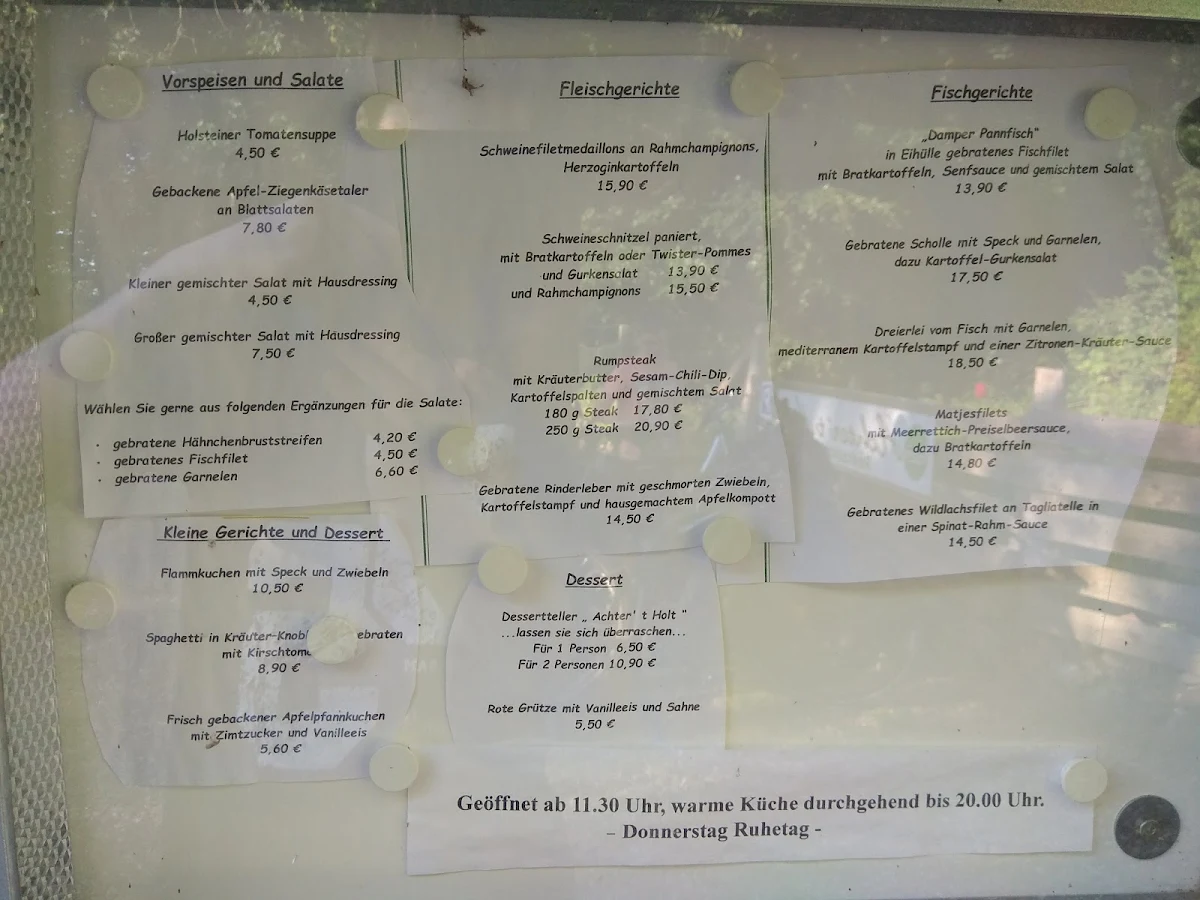 Vorspeisen und Salate
Holsteiner Tomatensuppe
4,50 €
Gebackene Apfel-Ziegenkäsetaler
an Blattsalaten
7,80 €
Kleiner gemischter Salat mit Hausdressing
4,50 €
Großer gemischter Salat mit Hausdressing
7,50 €
Wählen Sie gerne aus folgenden Ergänzungen für die Salate:
· gebratene Hähnchenbruststreifen 4,20 €
· gebratenes Fischfilet 4,50 €
· gebratene Garnelen 6,60 €
Kleine Gerichte und Dessert
Flammkuchen mit Speck und Zwiebeln
10,50 €
Spaghetti in Kräuter-Knobl ebraten
mit Kirschtom
8,90 €
Frisch gebackener Apfelpfannkuchen
mit Zimtzucker und Vanilleeis
5,60 €
Fleischgerichte
Schweinefiletmedaillons an Rahmchampignons,
Herzoginkartoffeln
15,90 €
Schweineschnitzel paniert,
mit Bratkartoffeln oder Twister-Pommes
und Gurkensalat 13,90 €
und Rahmchampignons 15,50 €
Rumpsteak
mit Kräuterbutter, Sesam-Chili-Dip,
Kartoffelspalten und gemischtem Salat
180 g Steak 17,80 €
250 g Steak 20,90 €
Gebratene Rinderleber mit geschmorten Zwiebeln,
Kartoffelstampf und hausgemachtem Apfelkompott
14,50 €
Dessert
Dessertteller „ Achter' t Holt "
...lassen sie sich überraschen...
Für 1 Person 6,50 €
Für 2 Personen 10,90 €
Rote Grütze mit Vanilleeis und Sahne
5,50 €
Fischgerichte
„Damper Pannfisch"
in Eihülle gebratenes Fischfilet
mit Bratkartoffeln, Senfsauce und gemischtem Salat
13,90 €
Gebratene Scholle mit Speck und Garnelen,
dazu Kartoffel-Gurkensalat
17,50 €
Dreierlei vom Fisch mit Garnelen,
mediterranem Kartoffelstampf und einer Zitronen-Kräuter-Sauce
18,50 €
Matjesfilets
mit Meerrettich-Preiselbeersauce,
dazu Bratkartoffeln
14,80 €
Gebratenes Wildlachsfilet an Tagliatelle in
einer Spinat-Rahm-Sauce
14,50 €
Geöffnet ab 11.30 Uhr, warme Küche durchgehend bis 20.00 Uhr.
– Donnerstag Ruhetag -